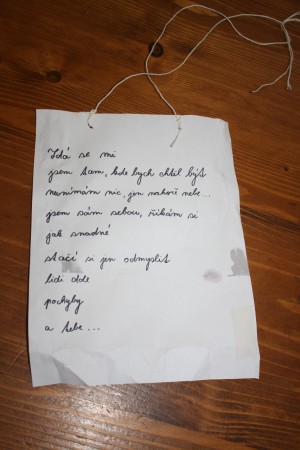 Zdá se mi
jsem tam, kde bych chtěl být
nevnímám nic, jen nahoře nebe...
jsem sám sebou, říkám si
jak snadné
stačí si jen odmyslit
lidi dole
pochyby
a tebe...